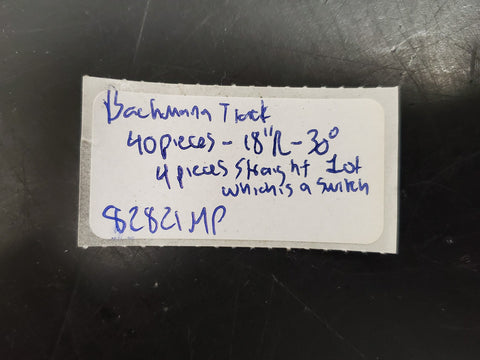 Bachmann Track
40 pieces - 18"R - 30°
4 pieces straight 1 of
which is a switch
82821MP